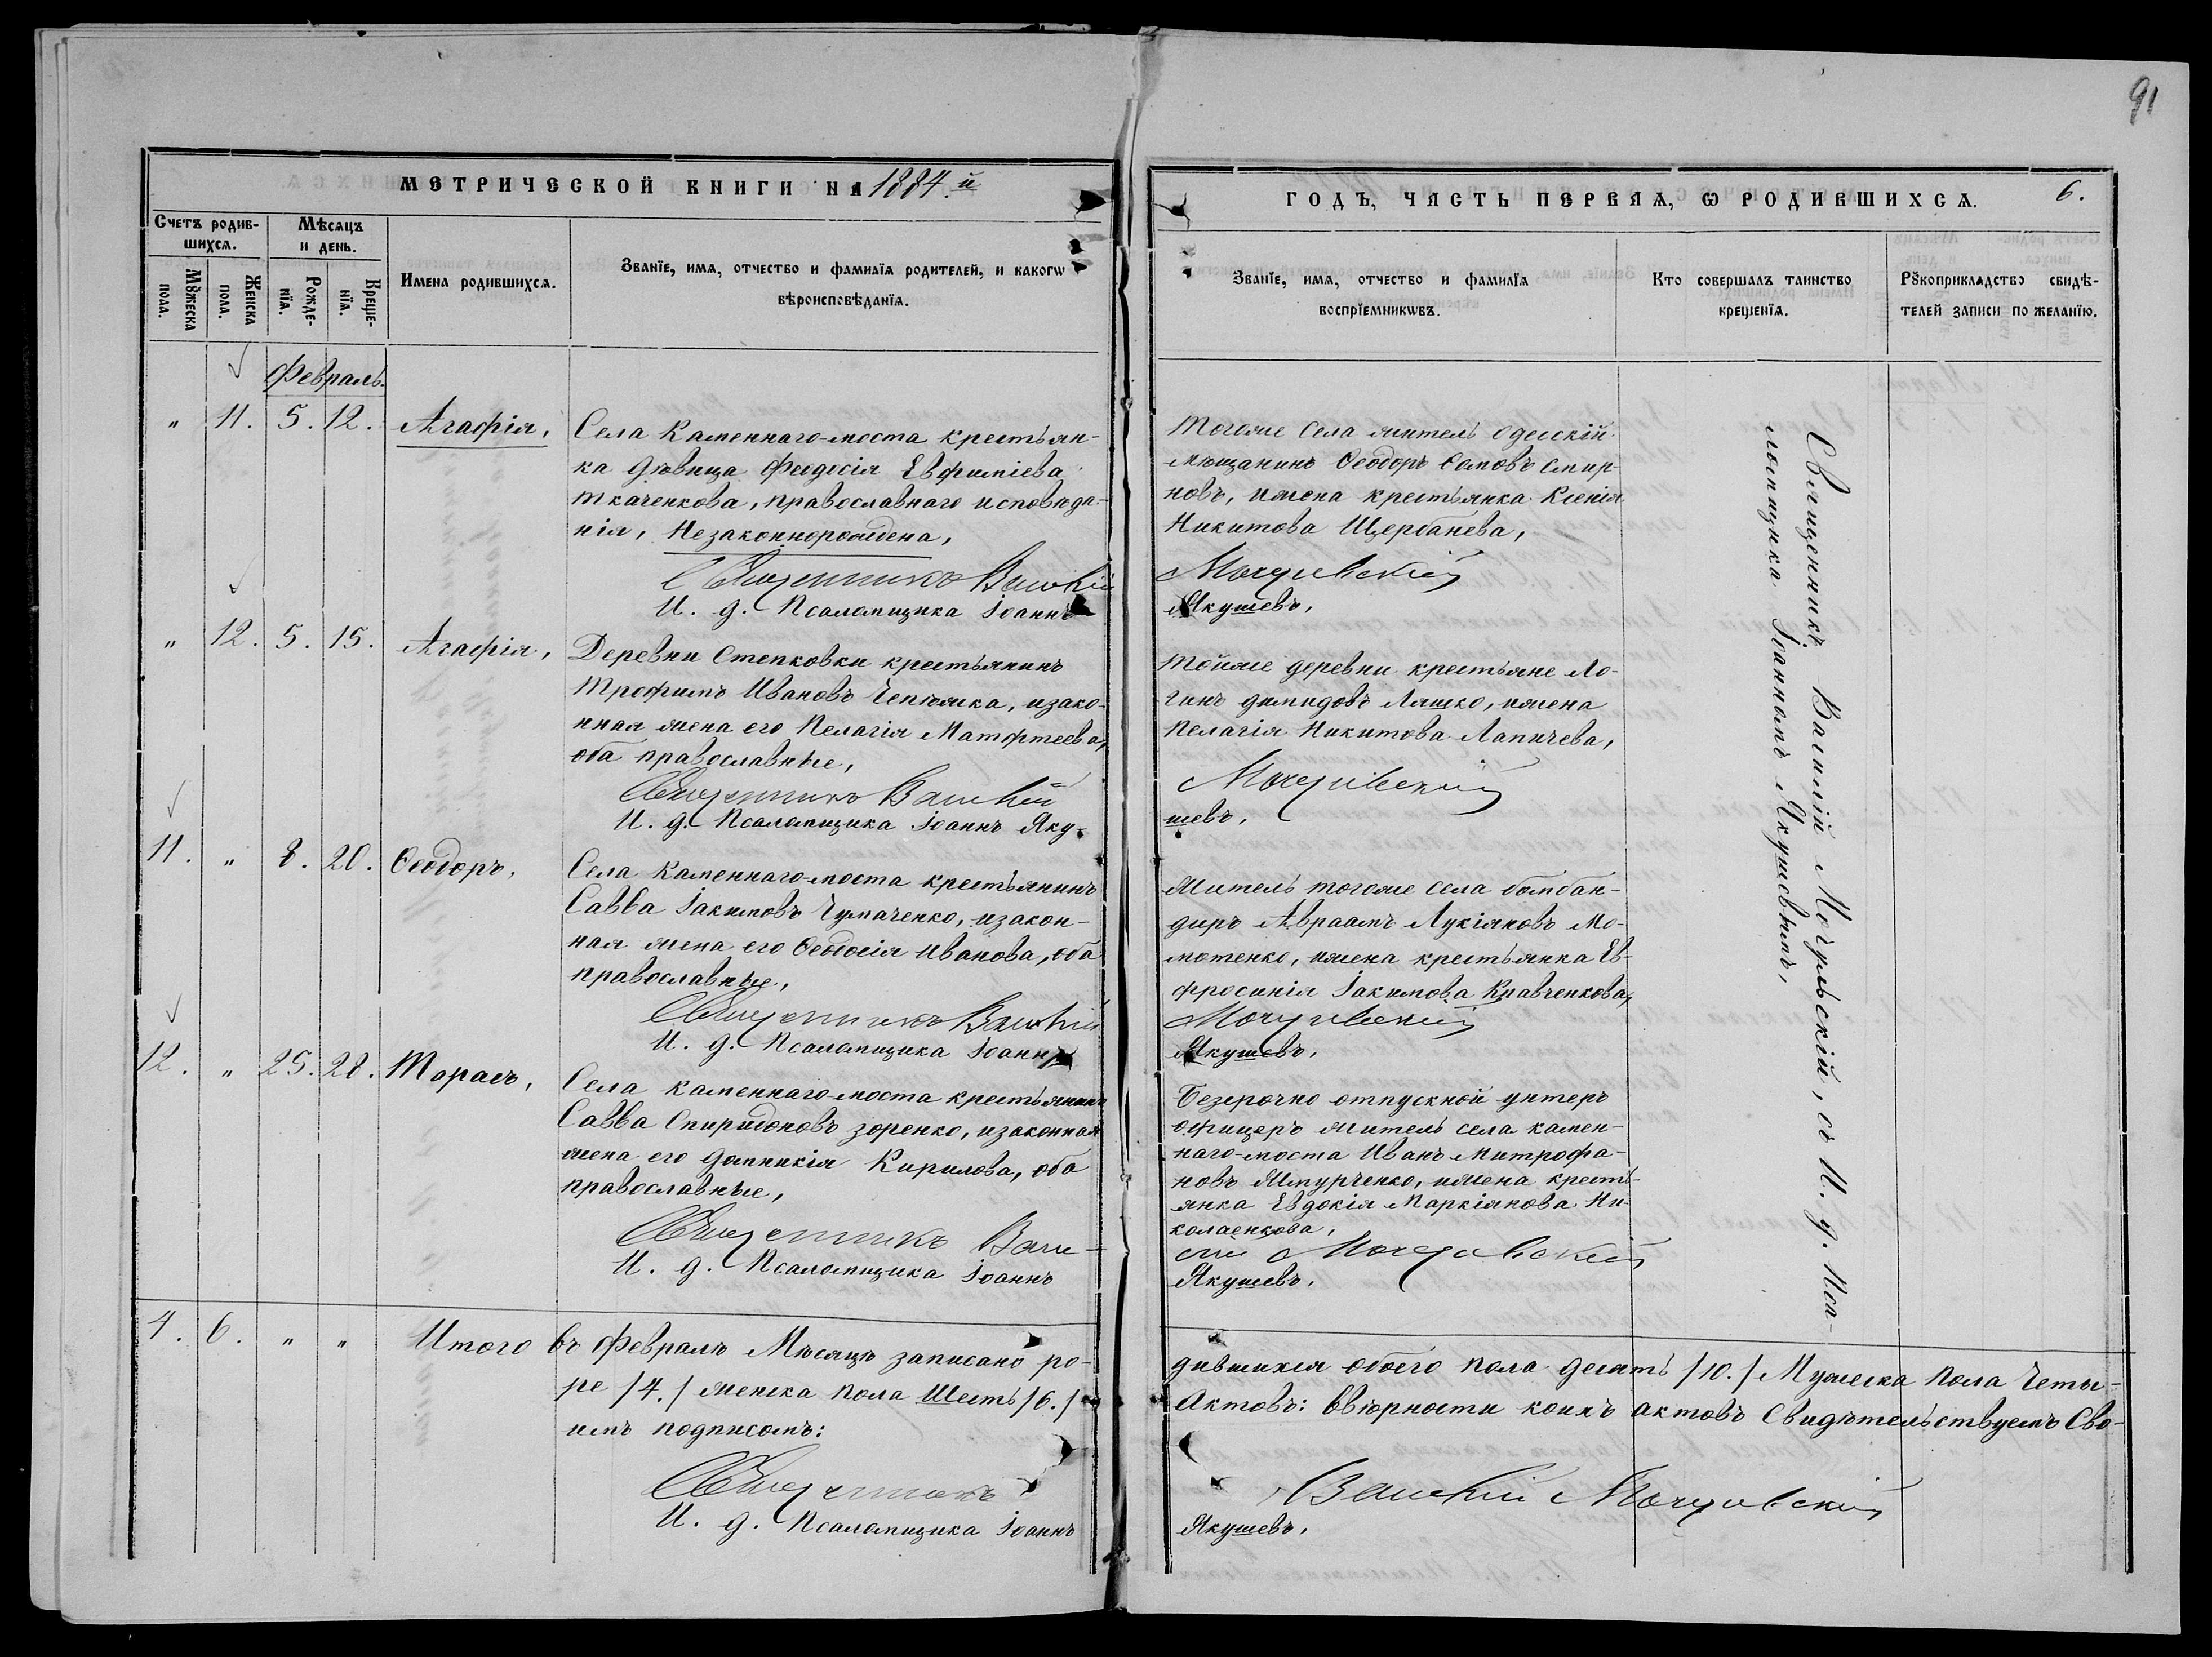 91
МЕТРИЧЕСКОЙ КНИГИ НА 1884.й
ГОДЪ, ЧАСТЬ ПЕРВАЯ, Ѡ РОДИВШИХСЯ.
6.
Счетъ родив-
шихся.
Мѣсяцъ
и день.
Мꙋжеска
пола.
Женска
пола.
Рожде-
нїя.
Креще-
нїя.
Имена родившихся.
Званїе, имя, отчество и фамилїя родителей, и какогѡ
вѣроисповѣданїя.
Званїе, имя, отчество и фамилїя
воспрїемникѡвъ.
Кто совершалъ таинство
крещенїя.
Рꙋкоприкладство свидѣ-
телей записи по желанїю.
Февраль.
" 11. 5. 12. Агафія,
Села Каменнаго-моста крестьян-
ка дѣвица Феодосія Евфиміева
Ткаченкова, православнаго исповѣда-
нія, Незаконнорождена,
Священникъ Василій
И. д. Псаломщика Іоаннъ
Тогоже села житель Одесскій
мѣщанинъ Ѳеодоръ Ѳомовъ Смир-
новъ, ижена крестьянка Ксенія
Никитова Щербанева,
Мочульскій
Якушевъ,
" 12. 5. 15. Агафія,
Деревни Степковки крестьянинъ
Трофимъ Ивановъ Чепѣжка, изако-
нная жена его Пелагія Матфтеева,
оба православные,
Священникъ Василій
И. д. Псаломщика Іоаннъ Яку-
Тойже деревни крестьяне Ло-
гинъ Димидовъ Ляшко, ижена
Пелагія Никитова Лапичева,
Мочульскій
шевъ,
11. " 8. 20. Ѳеодоръ,
Села Каменнаго-моста крестьянинъ
Савва Іакимовъ Чумаченко, изакон-
ная жена его Ѳеодосія Иванова, оба
православные,
Священникъ Василій
И. д. Псаломщика Іоаннъ
Житель тогоже села бомбан-
диръ Авраамъ Лукіяновъ Мо-
мотенко, ижена крестьянка Ев-
фросинія Іакимова Кравченкова,
Мочульскій
Якушевъ,
12. " 25. 28. Тарасъ,
Села Каменнаго-моста крестьянинъ
Савва Спиридоновъ Зоренко, изаконная
жена его Домникія Кирилова, оба
православные,
Священникъ Васи-
И. д. Псаломщика Іоаннъ
Безсрочно отпускной унтеръ
офицеръ житель села Камен-
наго-моста Иванъ Митрофа-
новъ Жмурченко, ижена кресть-
янка Евдокія Маркіянова Ни-
колаенкова,
лій Мочульскій
Якушевъ,
Священникъ Василій Мочульскій, съ И. д. Пса-
ломщика Іоанномъ Якушевымъ,
4. 6. " " Итого въ Февралѣ Мѣсяцѣ записано ро-
дившихся обоего пола десять /10./ Мужеска пола Четы-
ре /4./ женска пола Шесть /6./
Актовъ: ввѣрности коихъ актовъ Свидѣтельствуемъ Сво-
имъ подписомъ:
Священникъ
Василій Мочульскій
И. д. Псаломщика Іоаннъ
Якушевъ,